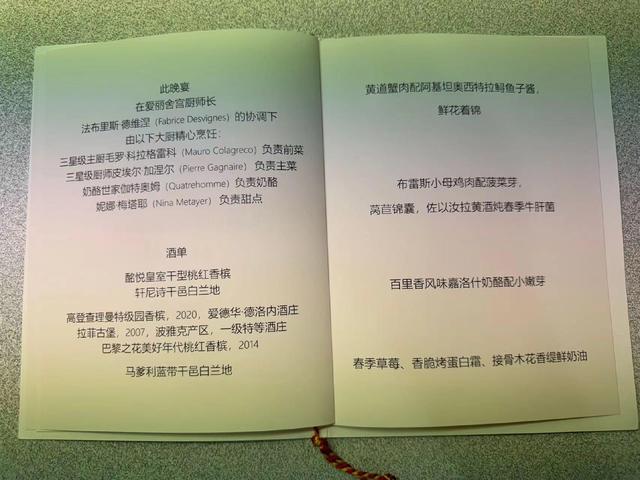 此晚宴
在爱丽舍宫厨师长
法布里斯·德维涅（Fabrice Desvignes）的协调下
由以下大厨精心烹饪：
三星级主厨毛罗·科拉格雷科（Mauro Colagreco）负责前菜
三星级厨师皮埃尔·加涅尔（Pierre Gagnaire）负责主菜
奶酪世家伽特奥姆（Quatrehomme）负责奶酪
妮娜·梅塔耶（Nina Metayer）负责甜点
酒单
酩悦皇室干型桃红香槟
轩尼诗干邑白兰地
高登查理曼特级园香槟，2020，爱德华·德洛内酒庄
拉菲古堡，2007，波雅克产区，一级特等酒庄
巴黎之花美好年代桃红香槟，2014
马爹利蓝带干邑白兰地
黄道蟹肉配阿基坦奥西特拉鲟鱼子酱，
鲜花着锦
布雷斯小母鸡肉配菠菜芽，
莴苣锦囊，佐以汝拉黄酒炖春季牛肝菌
百里香风味嘉洛什奶酪配小嫩芽
春季草莓、香脆烤蛋白霜、接骨木花香缇鲜奶油